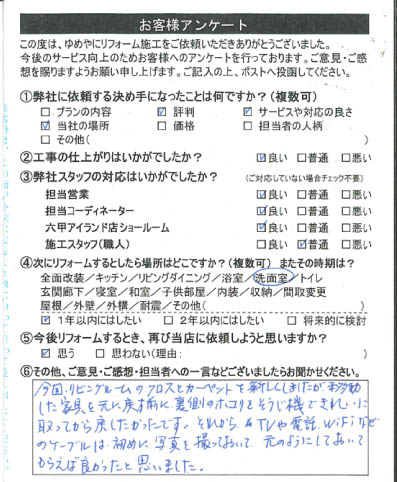 お客様アンケート
この度は、ゆめやにリフォーム施工をご依頼いただきありがとうございました。
今後のサービス向上のためお客様へのアンケートを行っております。ご意見・ご感
想を賜りますようお願い申し上げます。ご記入の上、ポストへ投函してください。
①弊社に依頼する決め手になったことは何ですか?(複数可)
□プランの内容 ☑評判 ☑サービスや対応の良さ
☑当社の場所 □価格 □担当者の人柄
□その他( )
②工事の仕上がりはいかがでしたか? ☑良い □普通 □悪い
③弊社スタッフの対応はいかがでしたか? (ご対応していない場合チェック不要)
担当営業 ☑良い □普通 □悪い
担当コーディネーター ☑良い □普通 □悪い
六甲アイランド店ショールーム ☑良い □普通 □悪い
施工スタッフ(職人) □良い ☑普通 □悪い
④次にリフォームするとしたら場所はどこですか?(複数可) またその時期は?
全面改装/キッチン/リビングダイニング/浴室/洗面室/トイレ
玄関廊下/寝室/和室/子供部屋/内装/収納/間取変更
屋根/外壁/外構/耐震/その他( )
☑1年以内にはしたい □2年以内にはしたい □将来的に検討
⑤今後リフォームするとき、再び当店に依頼しようと思いますか?
☑思う □思わない(理由: )
⑥その他、ご意見・ご感想・担当者への一言などございましたらお聞かせください。
今回、リビングルームのクロスとカーペットを新しくしましたが移動
した家具を元に戻す前に裏側のホコリをそうじ機できれいに
取ってから戻したかったです。それから、TVや電話、WiFiなど
のケーブルは初めに写真を撮っておいて、元のようにしておいて
もらえば良かったと思いました。